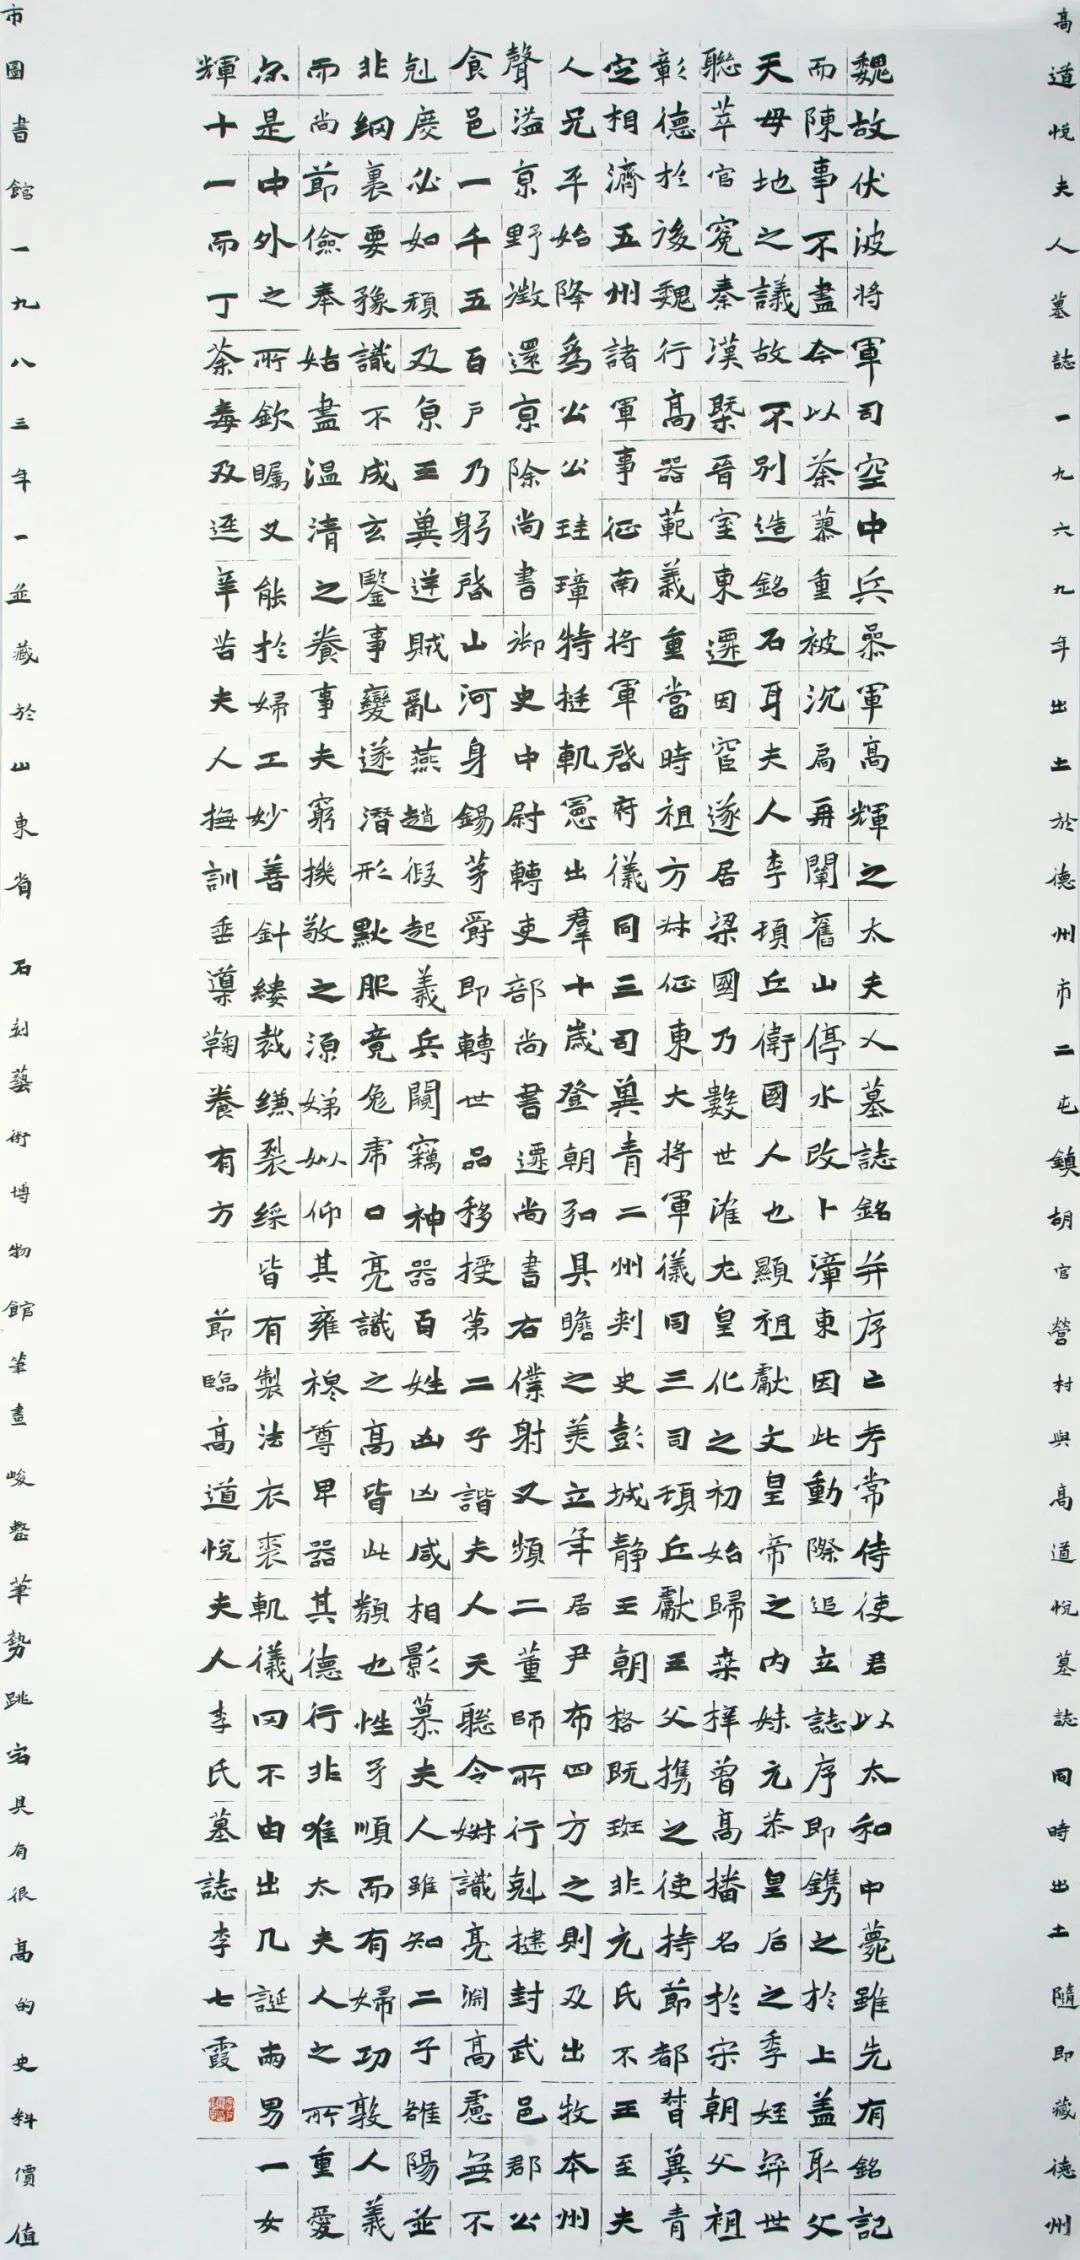 高道悅夫人墓誌一九六九年出土於德州市二屯鎮胡官營村與高道悅墓誌同時出土隨即藏德州
魏故伏波將軍司空中兵叅軍高輝之太夫人墓誌銘并序亡考常侍使君以太和中薨雖先有銘記
而陳事不盡今以荼蓼重被沉扃再闡舊山停水改卜漳東因此動際追立誌序即鐫之於上蓋取父
天母地之議故不別造銘石耳夫人李頓丘衛國人也顯祖獻文皇帝之内妹元恭皇后之季姪弈世
聯萃官冕秦漢槩晉室東遷因窋遂居梁國乃數世皇化之初始歸桒梓曾高播名於宋朝父祖
彰德於後魏行高器範義重當時祖方叔征東大將軍儀同三司頓丘獻王父攜之使持節都督冀青
定相濟五州諸軍事征南將軍啓府儀同三司冀青二州刺史彭城靜王朝格既班非元氏不王至夫
人兄平始降爲公公珪璋特挺軌憲出羣十歲登朝具瞻之美立年居尹布四方之則及出牧本州
聲溢京野徵還京除尚書御史中尉轉吏部尚書遷尚書右僕射又頻二董師所行剋揵封武邑郡公
食邑一千五百戶乃躬啓山河身錫茅爵即轉世品移授第二子諧夫人天聰令姝識亮淵高慮無不
剋度必如頹及京王冀逆賊亂燕趙假起義兵闚竊神器百姓凶凶咸相影慕夫人雖知二子雒陽並
非綱裏要豫識不成玄鑒事變遂潛形默服竟免虎口亮識之高皆此類也性矛順而有婦功敦人義
而尚節儉奉姑盡溫清之養事夫窮敬之源娣姒仰其雍穆尊卑器其德行非唯太夫人之所重愛
尒是中外之所欽矚又能於婦工妙善針縷裁縑裂綵皆有製法衣裘軌儀罔不由出凡誕兩男一女
輝十一而丁荼毒及逕辛苦夫人撫訓垂導鞠養有方 節臨高道悅夫人李氏墓誌李七霞
市圖書館一九八三年一並藏於山東省石刻藝術博物館筆畫峻整筆勢跳宕具有很高的史料價值